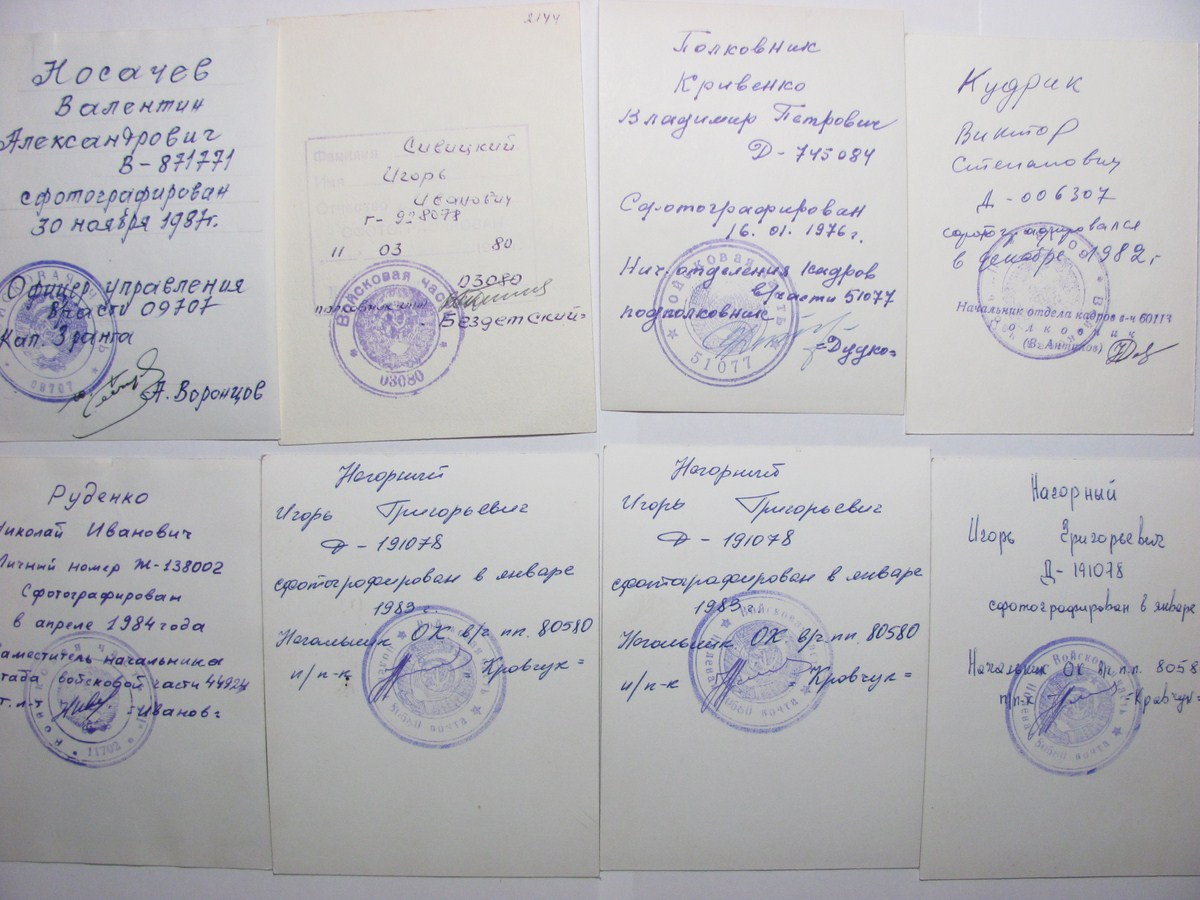 Носачев
Валентин
Александрович
В-871771
сфотографирован
30 ноября 1987г.
Офицер управления
в части 09707
Кап. 3 ранга
А. Воронцов
09707
2144
Фамилия Сивицкий
Имя Игорь
Отчество Иванович
Г-928078
11 03 80
03080
подполковник
Бездетский=
Войсковая часть
03080
Полковник
Кривенко
Владимир Петрович
Д-745084
Сфотографирован
16.01.1976г.
Нач. отделения кадров
в/части 51077
подполковник
=Дудко=
Войсковая часть
51077
Кудрик
Виктор
Степанович
Д-006307
сфотографировался
в декабре 1982г
Начальник отдела кадров в-ч 60113
полковник
(В. Антипов)
Руденко
Николай Иванович
Личный номер Ж-138002
Сфотографирован
в апреле 1984 года
Заместитель начальника
штаба войсковой части
=Иванов=
11702
Нагорный
Игорь Григорьевич
Д-191078
сфотографирован в январе
1983г.
Начальник ОК в/ч пп. 80580
п/п-к =Кравчук=
почта
Нагорный
Игорь Григорьевич
Д-191078
сфотографирован в январе
1983г.
Начальник ОК в/ч пп. 80580
п/п-к =Кравчук=
почта
Нагорный
Игорь Григорьевич
Д-191078
сфотографирован в январе
Начальник ОК п.п. 8058
п/п-к =Кравчук=
почта